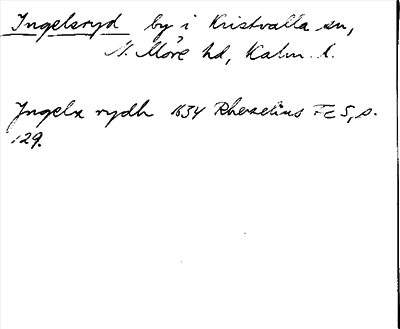 Ingelsryd by i Kristvalla sn,
N. Möre hd, Kalm. l.
Jngelx rydh 1634 Rhezelius FE 5, s.
129.